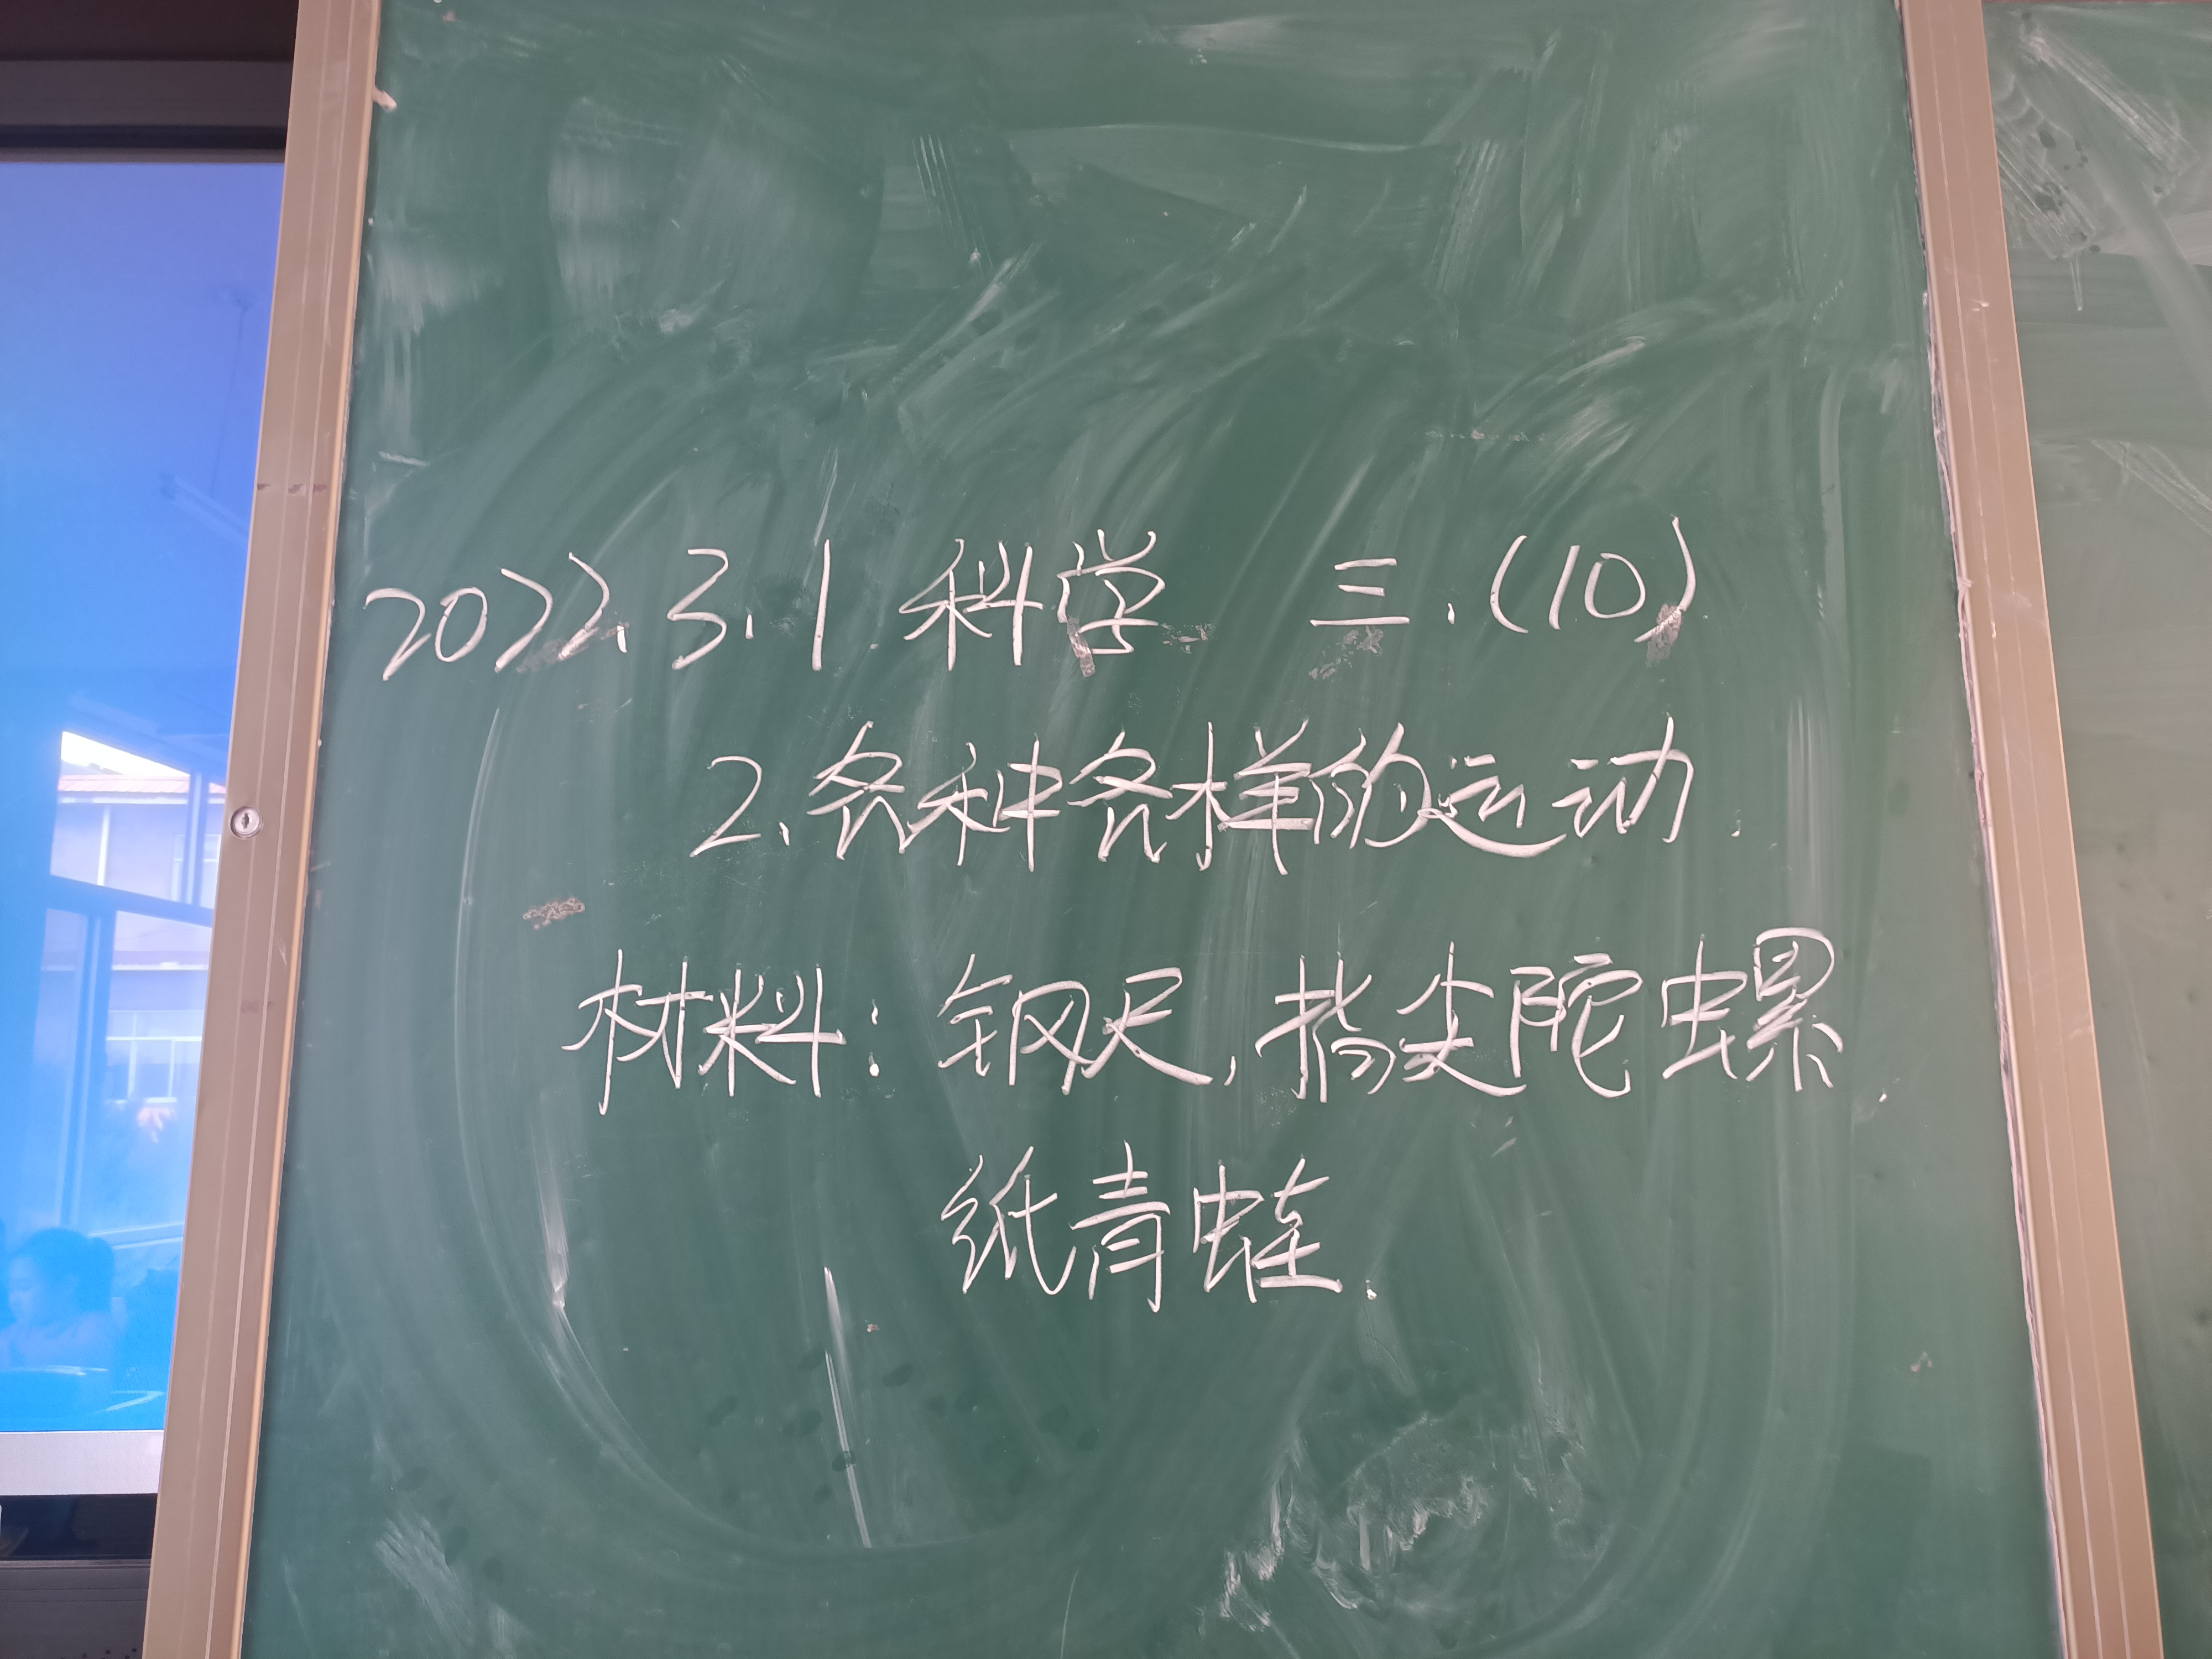 2022.3.1 科学 三.(10)
2.各种各样的运动.
材料:钢尺,指尖陀螺.
纸青蛙.